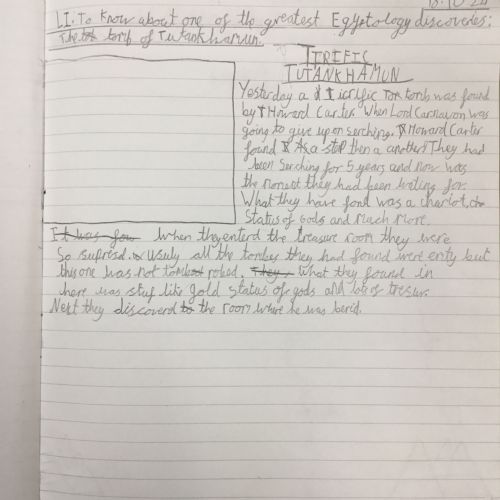 18.10.24
LI. To know about one of the greatest Egyptology discoveries:
The tomb of Tutankhamun.
TIRIFIC
TUTANKHAMUN
Yesterday a tomb was found
by Howard Carter. When Lord Carnavon was
going to give up on serching, Howard Carter
found a step then a another! They had
been serching for 5 years and now was
the moment they had been waiting for.
What they have fond was a chariot,
Status of Gods and much more.
It was fou When they enterd the treasure room they were
So suprisd. Usuly all the tombes they had found were emty but
this one was not robed. They What they found in
here was stuf like gold status of gods and lots of tresur.
Next they discoverd to the room where he was berid.